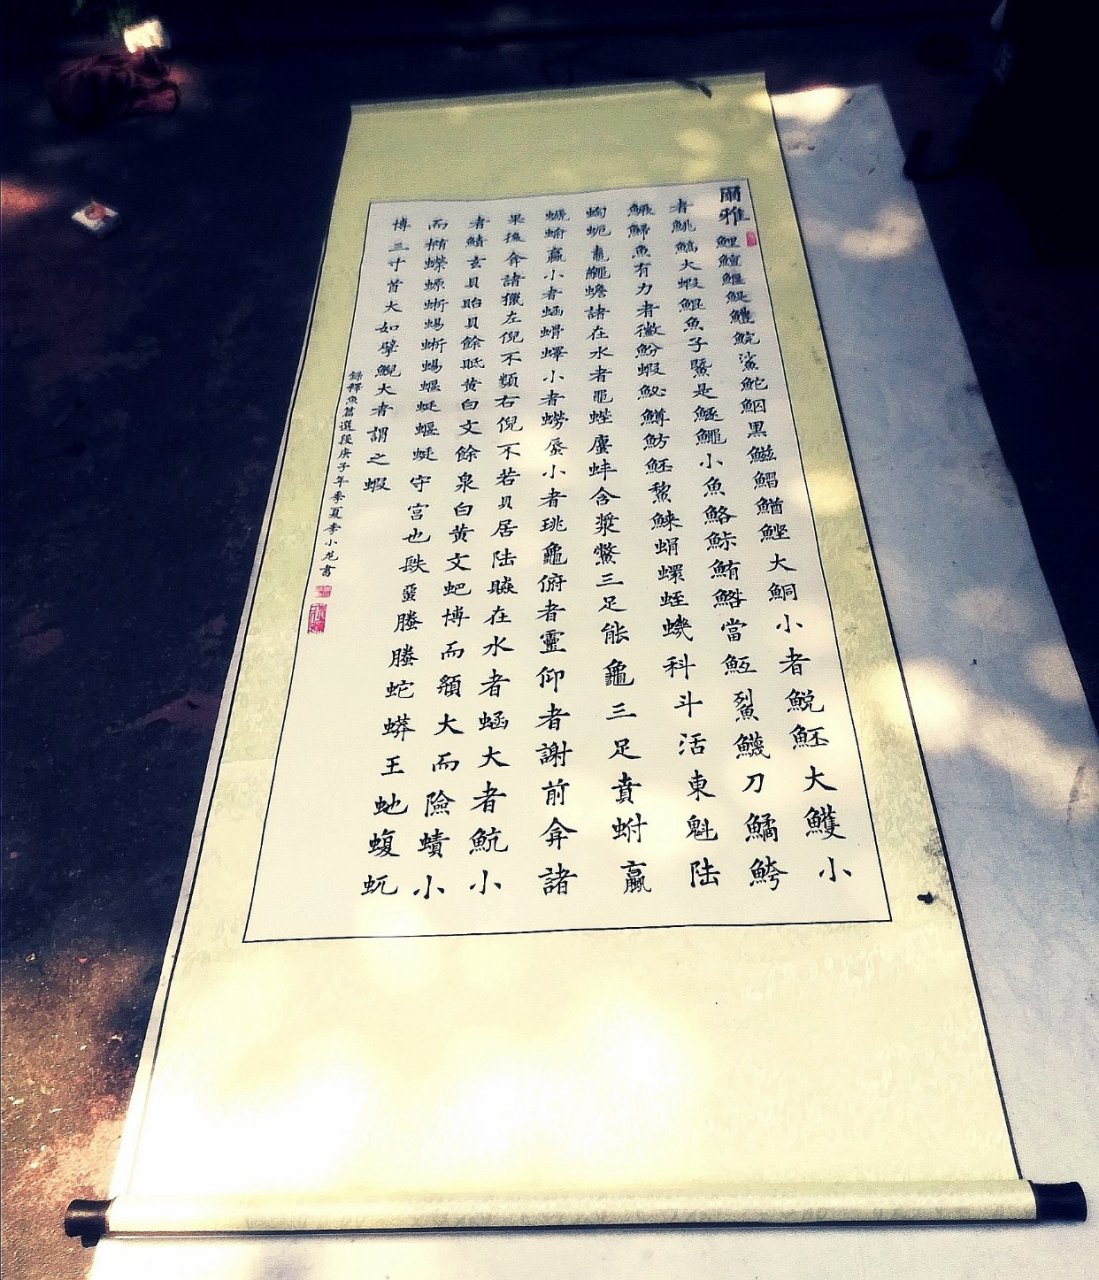 爾雅 鯉鱣鰋鯷鱧鯇鯊鮀鮂黑鰦鰼鰌鰹大鮦小者鮵魾大鱯小
者鮡鰝大蝦鯤魚子鱀是鱁鱦小魚鮥鮛鮪鯦當魱鮤鱴刀鱊鮬
鱖鯞魚有力者徽魵蝦鮅鱒魴魾鯬鯠蜎蠉蛭蟣科斗活東魁陸
蜪蚅鼁𪓰蟾諸在水者黽蜌螷蚌含漿鱉三足能龜三足賁蚹蠃
螔蝓蠃小者蜬螖蠌小者蟧蜃小者珧龜俯者靈仰者謝前弇諸
果後弇諸獵左倪不類右倪不若貝居陸贆在水者蜬大者魧小
者鰿玄貝貽貝餘貾黃白文餘泉白黃文蚆博而頯大而險蟦小
而橢蠑螈蜥蜴蜥蜴蝘蜓蝘蜓守宮也镻蝁螣螣蛇蟒王虺蝮虺
博三寸首大如擘鯢大者謂之蝦
錄釋魚篇選段庚子年季夏李小書